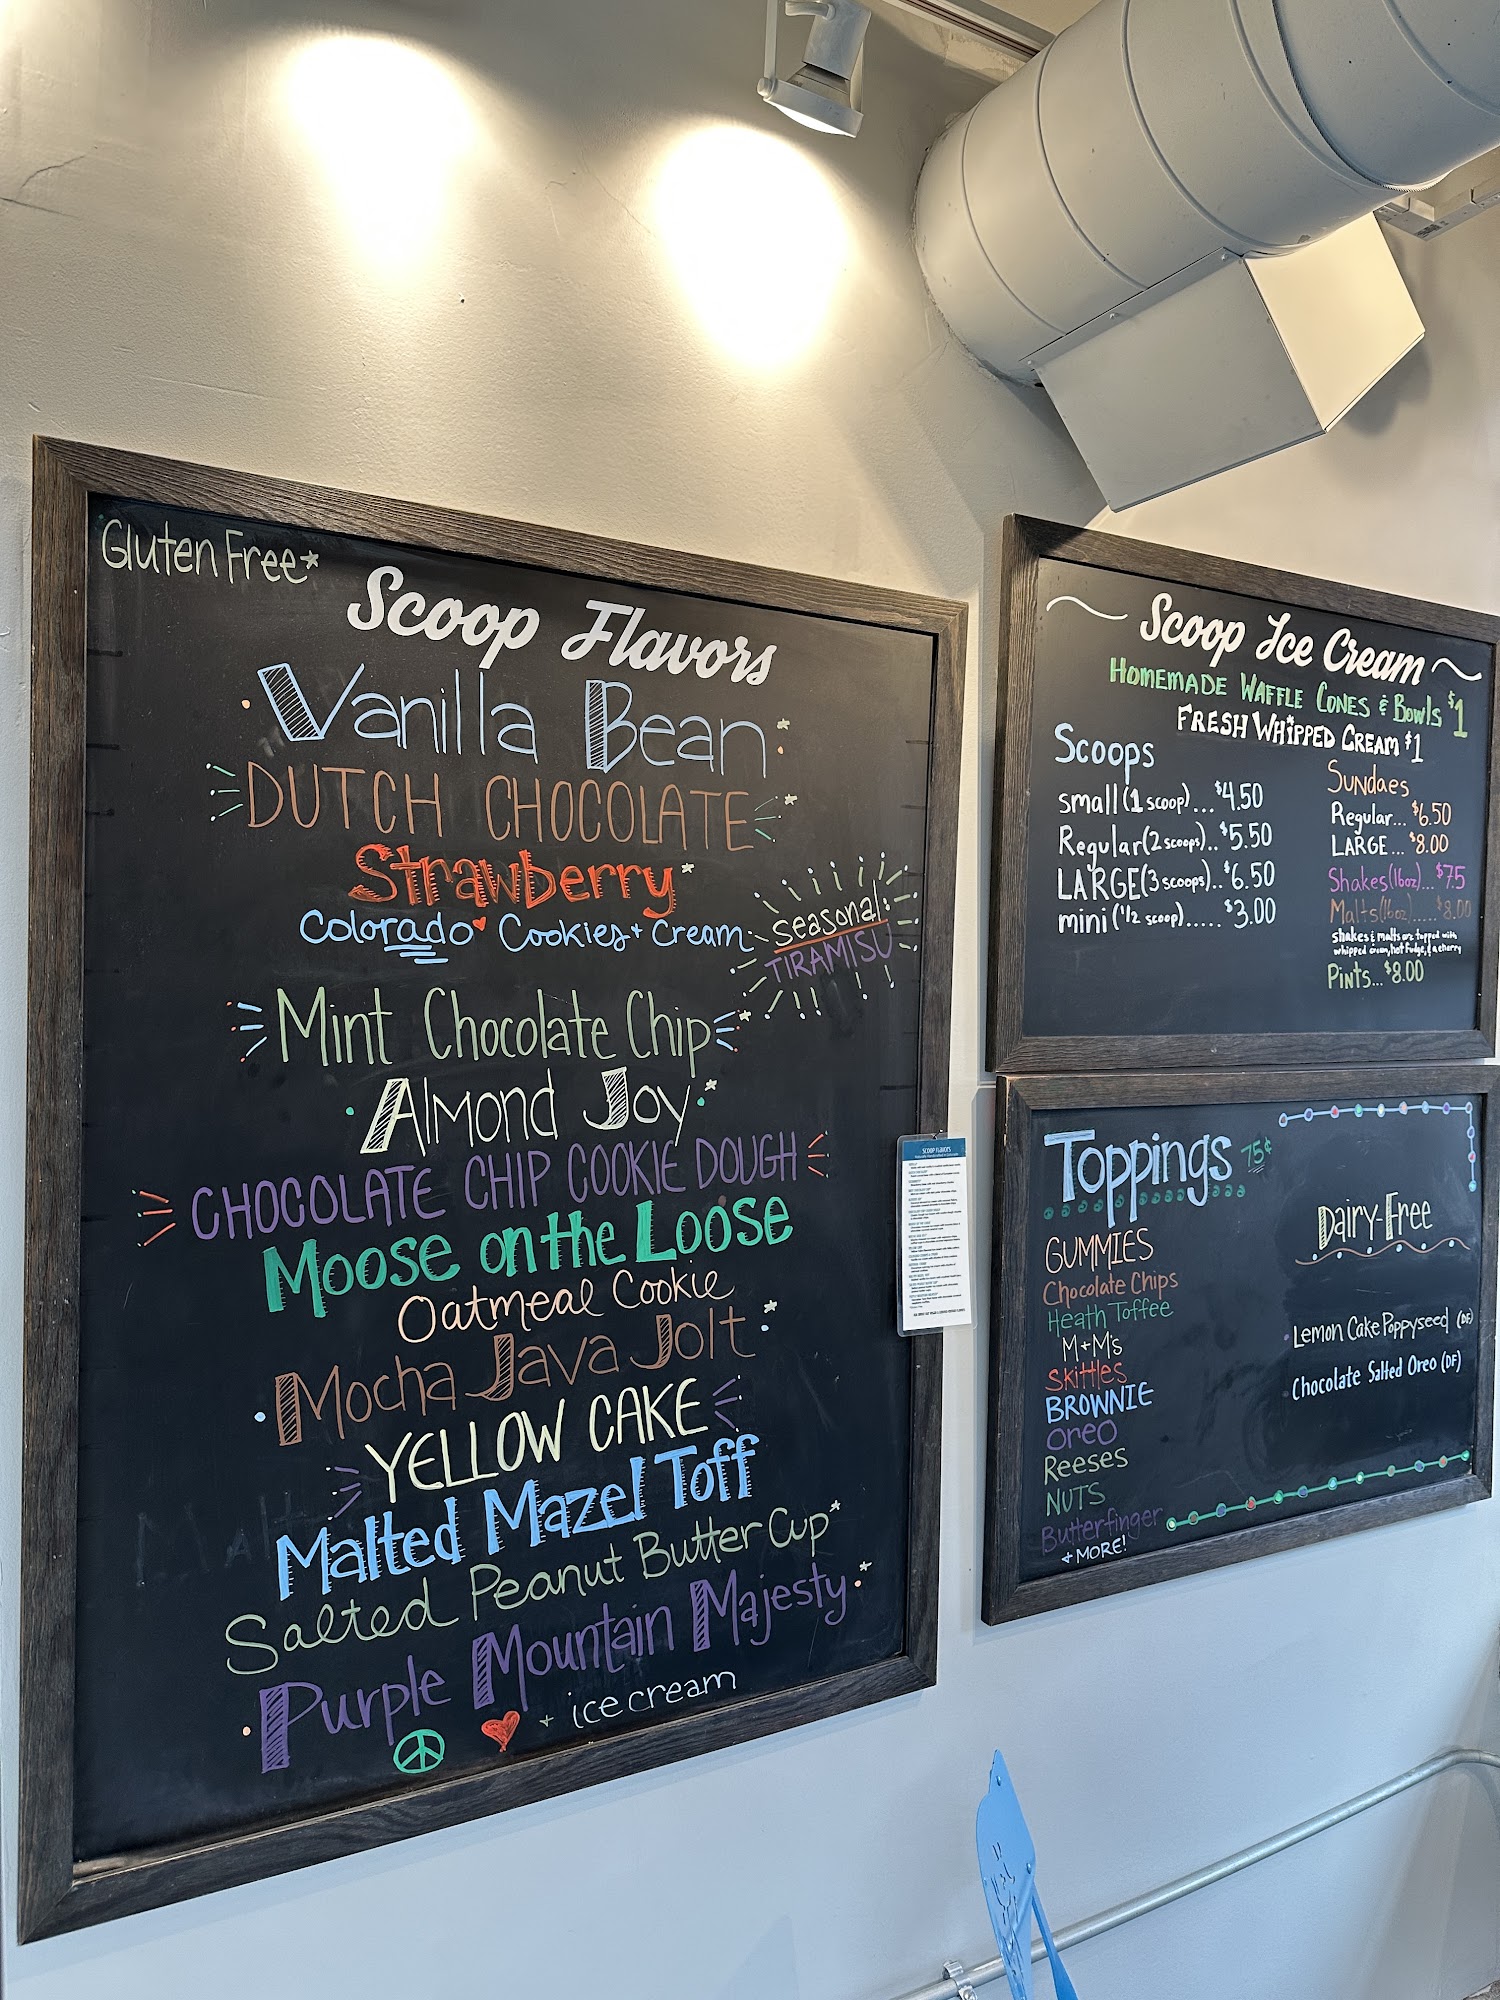 Gluten Free*
Scoop Flavors
Vanilla Bean*
DUTCH CHOCOLATE*
Strawberry*
Colorado Cookies + Cream
Seasonal:
TIRAMISU
Mint Chocolate Chip*
Almond Joy*
CHOCOLATE CHIP COOKIE DOUGH
Moose on the Loose
Oatmeal Cookie
Mocha Java Jolt*
YELLOW CAKE
Malted Mazel Toff
Salted Peanut Butter Cup*
Purple Mountain Majesty*
+ ice cream
SCOOP FLAVORS
Scoop Ice Cream
HOMEMADE WAFFLE CONES & BOWLS $1
FRESH WHIPPED CREAM $1
Scoops
small (1 scoop)... $4.50
Regular (2 scoops).. $5.50
LARGE (3 scoops).. $6.50
mini (1/2 scoop)..... $3.00
Sundaes
Regular... $6.50
LARGE... $8.00
Shakes (16oz)... $7.5
Malts (16oz)..... $8.00
shakes & malts are topped with
whipped cream, hot fudge, & a cherry
Pints... $8.00
Toppings 75¢
GUMMIES
Chocolate Chips
Heath Toffee
M+M's
Skittles
BROWNIE
Oreo
Reeses
NUTS
Butterfinger
+ MORE!
Dairy-Free
Lemon Cake Poppyseed (DF)
Chocolate Salted Oreo (DF)